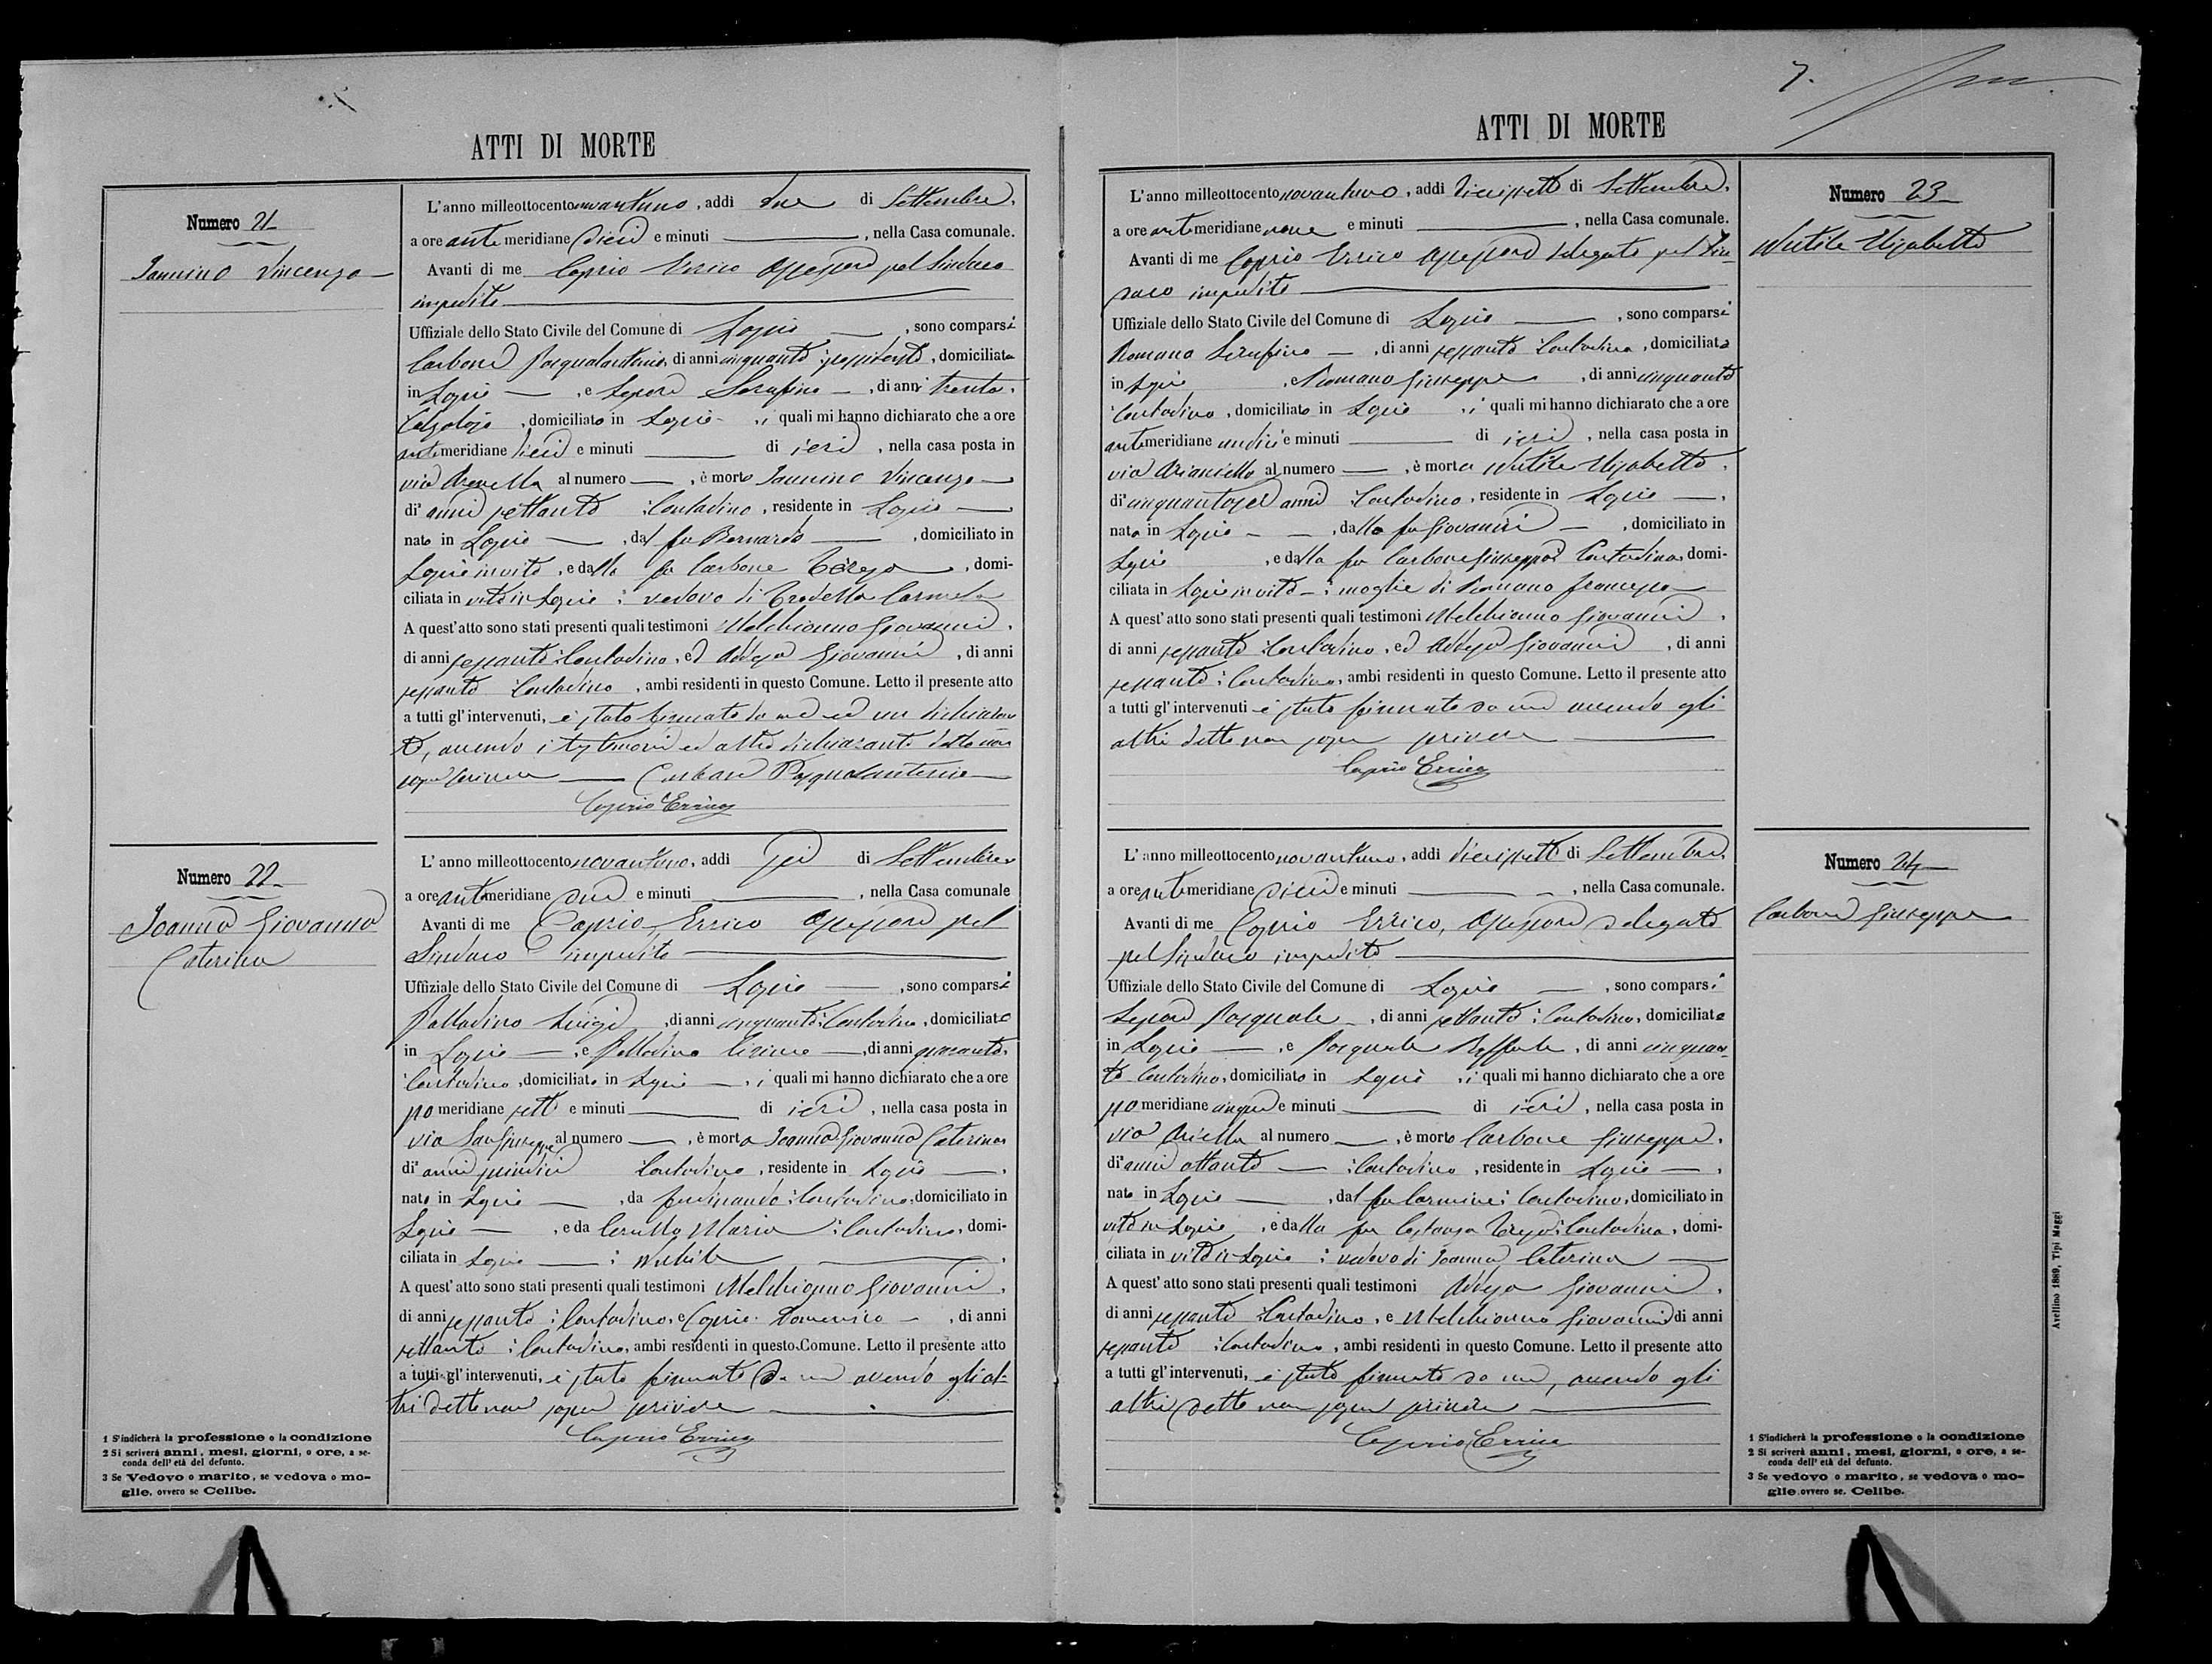 ATTI DI MORTE
Numero 21
Iannino Vincenzo
L'anno milleottocentonovantuno, addì due di Settembre,
a ore antimeridiane dieci e minuti, nella Casa comunale.
Avanti di me Caprio Errico Assessore pel Sindaco
impedito
Uffiziale dello Stato Civile del Comune di Lapio, sono comparsi
Carbone Pasqualantonio, di anni cinquanta: possidente, domiciliato
in Lapio, e Lepore Serafino, di anni trenta,
Calzolajo, domiciliato in Lapio, i quali mi hanno dichiarato che a ore
antimeridiane dieci e minuti di ieri, nella casa posta in
via Arenella al numero, è morto Iannino Vincenzo
di anni settanta: Contadino, residente in Lapio
nato in Lapio, dal fu Bernardo, domiciliato in
Lapio in vita, e dalla fu Carbone Teresa, domi-
ciliata in vita in Lapio: vedovo di Carmela
A quest'atto sono stati presenti quali testimoni Melchionno Giovanni,
di anni sessanta: Contadino, ed Addeza Giovanni, di anni
sessanta Contadino, ambi residenti in questo Comune. Letto il presente atto
a tutti gl'intervenuti, è stato firmato da me ed un dichiaran
te, avendo i testimoni ed altro dichiarante detto non
saper scrivere Carbone Pasqualantonio
Caprio Errico
Numero 22
Ioanna Giovanna
Caterina
L'anno milleottocentonovantuno, addì sei di Settembre
a ore antimeridiane due e minuti, nella Casa comunale
Avanti di me Caprio Errico Assessore pel
Sindaco impedito
Uffiziale dello Stato Civile del Comune di Lapio, sono comparsi
Palladino Luigi, di anni cinquanta: Contadino, domiciliato
in Lapio, e Palladino, di anni quaranta,
Contadino, domiciliato in Lapio, i quali mi hanno dichiarato che a ore
pomeridiane sette e minuti di ieri, nella casa posta in
via San Giuseppe al numero, è morta Ioanna Giovanna Caterina
di anni quindici Contadina, residente in Lapio
nata in Lapio, da Ferdinando: Contadino, domiciliato in
Lapio, e da Cerullo Maria: Contadina, domi-
ciliata in Lapio: nubile
A quest'atto sono stati presenti quali testimoni Melchionno Giovanni,
di anni sessanta: Contadino, e Caprio Domenico, di anni
settanta: Contadino, ambi residenti in questo Comune. Letto il presente atto
a tutti gl'intervenuti, è stato firmato da me avendo gli al-
tri detto non saper scrivere
Caprio Errico
1 S'indicherà la professione o la condizione
2 Si scriverà anni, mesi, giorni, o ore, a se-
conda dell'età del defunto.
3 Se Vedovo o marito, se vedova o mo-
glie, ovvero se Celibe.
7.
ATTI DI MORTE
Numero 23
Nutile Elisabetta
L'anno milleottocentonovantuno, addì diecissette di Settembre,
a ore antimeridiane nove e minuti, nella Casa comunale.
Avanti di me Caprio Errico Assessore delegato pel Sin-
daco impedito
Uffiziale dello Stato Civile del Comune di Lapio, sono comparsi
Romano Serafino, di anni sessanta Contadino, domiciliato
in Lapio, e Romano Giuseppe, di anni cinquanta
Contadino, domiciliato in Lapio, i quali mi hanno dichiarato che a ore
antimeridiane undici e minuti di ieri, nella casa posta in
via Arianiello al numero, è morta Nutile Elisabetta,
di cinquantasei anni Contadina, residente in Lapio,
nata in Lapio, dallo fu Giovanni, domiciliato in
Lapio, e dalla fu Carbone Giuseppa Contadina, domi-
ciliata in Lapio in vita: moglie di Romano Francesco
A quest'atto sono stati presenti quali testimoni Melchionno Giovanni,
di anni sessanta: Contadino, ed Addeza Giovanni, di anni
sessanta: Contadino, ambi residenti in questo Comune. Letto il presente atto
a tutti gl'intervenuti è stato firmato da me avendo gli
altri detto non saper scrivere
Caprio Errico
Numero 24
Carbone Giuseppe
L'anno milleottocentonovantuno, addì diecissette di Settembre,
a ore antimeridiane dieci e minuti, nella Casa comunale.
Avanti di me Caprio Errico, Assessore delegato
pel Sindaco impedito
Uffiziale dello Stato Civile del Comune di Lapio, sono comparsi
Lepore Pasquale, di anni settanta: Contadino, domiciliato
in Lapio, e Pasquale Raffaele, di anni cinquan-
ta Contadino, domiciliato in Lapio, i quali mi hanno dichiarato che a ore
pomeridiane cinque e minuti di ieri, nella casa posta in
via Ariella al numero, è morto Carbone Giuseppe,
di anni ottanta: Contadino, residente in Lapio,
nato in Lapio, dal fu Carmine: Contadino, domiciliato in
vita in Lapio, e dalla fu Costanza Teresa: Contadina, domi-
ciliata in vita in Lapio: vedovo di Ioanna Caterina
A quest'atto sono stati presenti quali testimoni Addeza Giovanni,
di anni sessanta Contadino, e Melchionno Giovanni di anni
sessanta: Contadino, ambi residenti in questo Comune. Letto il presente atto
a tutti gl'intervenuti, è stato firmato da me, avendo gli
altri detto non saper scrivere
Caprio Errico
1 S'indicherà la professione o la condizione
2 Si scriverà anni, mesi, giorni, o ore, a se-
conda dell'età del defunto.
3 Se vedovo o marito, se vedova o mo-
glie, ovvero se. Celibe.
Avellino 1889, Tipi Maggi